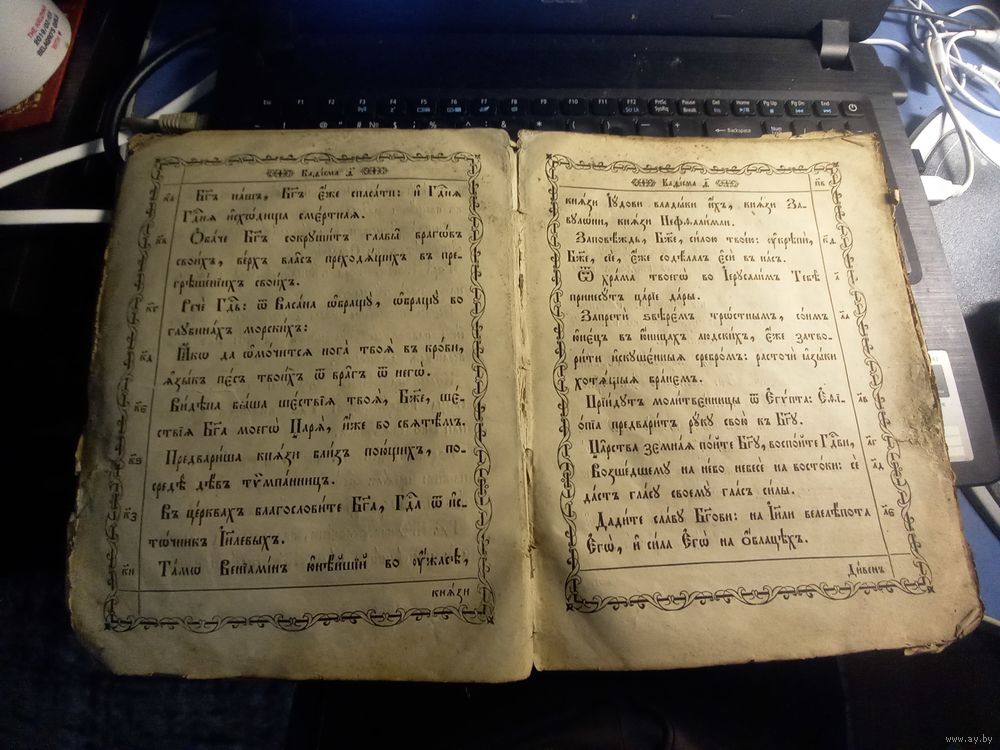 Каѳісма д҃
к҃а Бг҃ъ на́шъ, Бг҃ъ є҆́же спаса́ти: и҆ Гдⷭ҇нѧ
Гдⷭ҇нѧ и҆схѡ́дища сме́ртнаѧ.
к҃в Ѻ҆ба́че Бг҃ъ сокруши́тъ главы̑ врагѡ́въ
свои́хъ, ве́рхъ вла́съ преходѧ́щихъ въ пре-
грѣше́нїихъ свои́хъ.
к҃г Речѐ Гдⷭ҇ь: ѿ Васа́на ѡ҆бращꙋ̀, ѡ҆бращꙋ̀ во
глꙋбина́хъ морски́хъ:
к҃д Ꙗ҆́кѡ да ѡ҆мо́читсѧ нога̀ твоѧ̀ въ кро́ви,
ѧ҆зы́къ пє́съ твои́хъ ѿ вра̑гъ ѿ негѡ̀.
к҃є Ви́дѣна бы́ша ше́ствїѧ твоѧ̑, Бж҃е, ше́-
ствїѧ Бг҃а моегѡ̀ Цр҃ѧ̀, и҆́же во свѧтѣ́мъ.
к҃ѕ Предвари́ша кнѧ̑зи бли́зъ пою́щихъ, по-
средѣ̀ дѣ́въ тѷмпа́нницъ.
к҃з Въ це́рквахъ благослови́те Бг҃а, Гдⷭ҇а ѿ и҆с-
тѡ́чникъ І҆и҃левыхъ.
к҃и Та́мѡ Венїамі́нъ ю҆нѣ́йшїй во ᲂу҆́жасѣ,
кнѧ̑зи
Каѳісма д҃
п҃в
кнѧ̑зи І҆ꙋ́дѡвы влады̑ки и҆́хъ, кнѧ̑зи За-
вꙋлѡ̑ни, кнѧ̑зи Нефѳалі̑мли.
Заповѣ́ждь, Бж҃е, си́лою твое́ю: ᲂу҆крѣпѝ, к҃ѳ
Бж҃е, сїѐ, є҆́же содѣ́лалъ є҆сѝ въ на́съ.
Ѿ хра́ма твоегѡ̀ во І҆ерⷭ҇али́мъ Тебѣ̀ л҃
принесꙋ́тъ ца́рїе да́ры.
Запретѝ ѕвѣрє́мъ трѡ́стнымъ, со́нмъ л҃а
ю҆нє́цъ въ ю҆́ницахъ людски́хъ, є҆́же затво-
ри́ти и҆скꙋшє́нныѧ сребро́мъ: расточѝ ꙗ҆зы́ки
хотѧ́щыѧ бра́немъ.
Прїи́дꙋтъ моли́твенницы ѿ Є҆гѵ́пта: Є҆ѳїо- л҃в
о́пїа предвари́тъ рꙋ́кꙋ свою̀ къ Бг҃ꙋ.
Ца̑рства земна̑ѧ по́йте Бг҃ꙋ, воспо́йте Гдⷭ҇ви, л҃г
Возше́дшемꙋ на не́бо небесѐ на восто́ки: сѐ л҃д
да́стъ гла́сꙋ своемꙋ̀ гла́съ си́лы.
Дади́те сла́вꙋ Бг҃ови: на І҆и҃ли велелѣ́пота л҃є
Є҆гѡ̀, и҆ си́ла Є҆гѡ̀ на ѻ҆́блацѣхъ.
Ди́венъ
www.ay.by